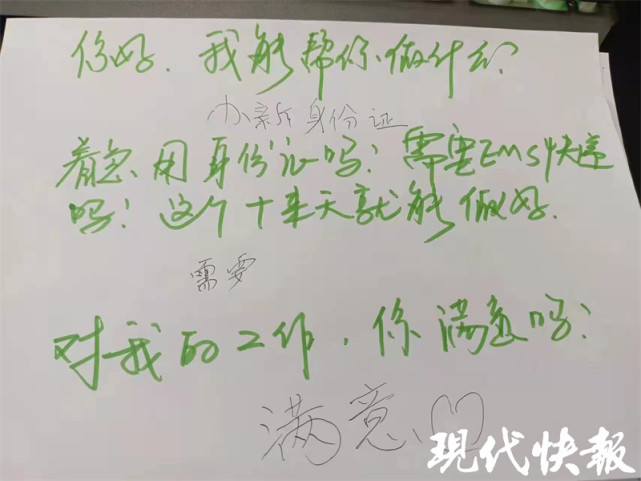 你好.我能帮你做什么?
办新身份证
着急用身份证吗?需要EMS快递
吗?这个十来天就能做好.
需要
对我的工作,你满意吗?
满意♡
现代快報